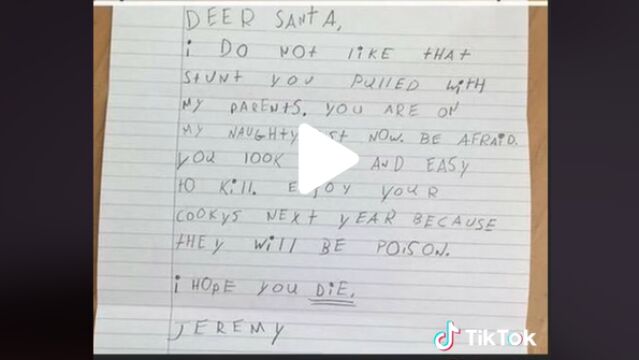 DEER SANTA,
i DO NOT liKE tHAt
StUNt yOU PUllED witH
MY PARENtS. YOU ARE ON
MY NAUGHTY NOW. BE AFRAiD.
YOU lOOK AND EASY
tO Kill. YOUR
COOKYS NEXt yEAR BECAUSE
tHEY Will BE POiSON.
i HOPE YOU DiE.
JEREMY
TikTok